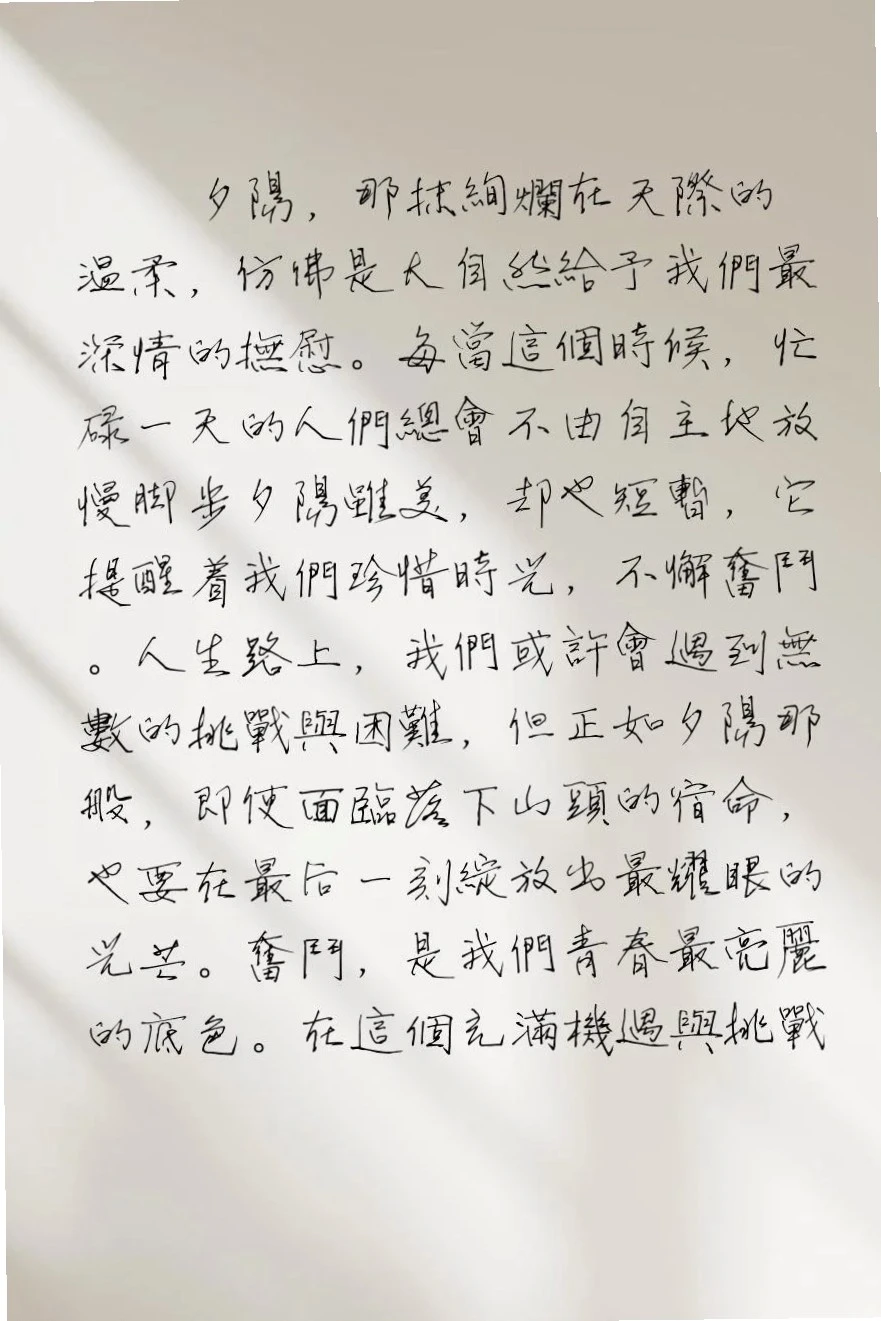 夕陽，那抹絢爛在天際的
溫柔，仿佛是大自然給予我們最
深情的撫慰。每當這個時候，忙
碌一天的人們總會不由自主地放
慢脚步夕陽雖美，却也短暫，它
提醒着我們珍惜時光，不懈奮鬥
。人生路上，我們或許會遇到無
數的挑戰與困難，但正如夕陽那
般，即使面臨落下山頭的宿命，
也要在最后一刻綻放出最耀眼的
光芒。奮鬥，是我們青春最亮麗
的底色。在這個充滿機遇與挑戰